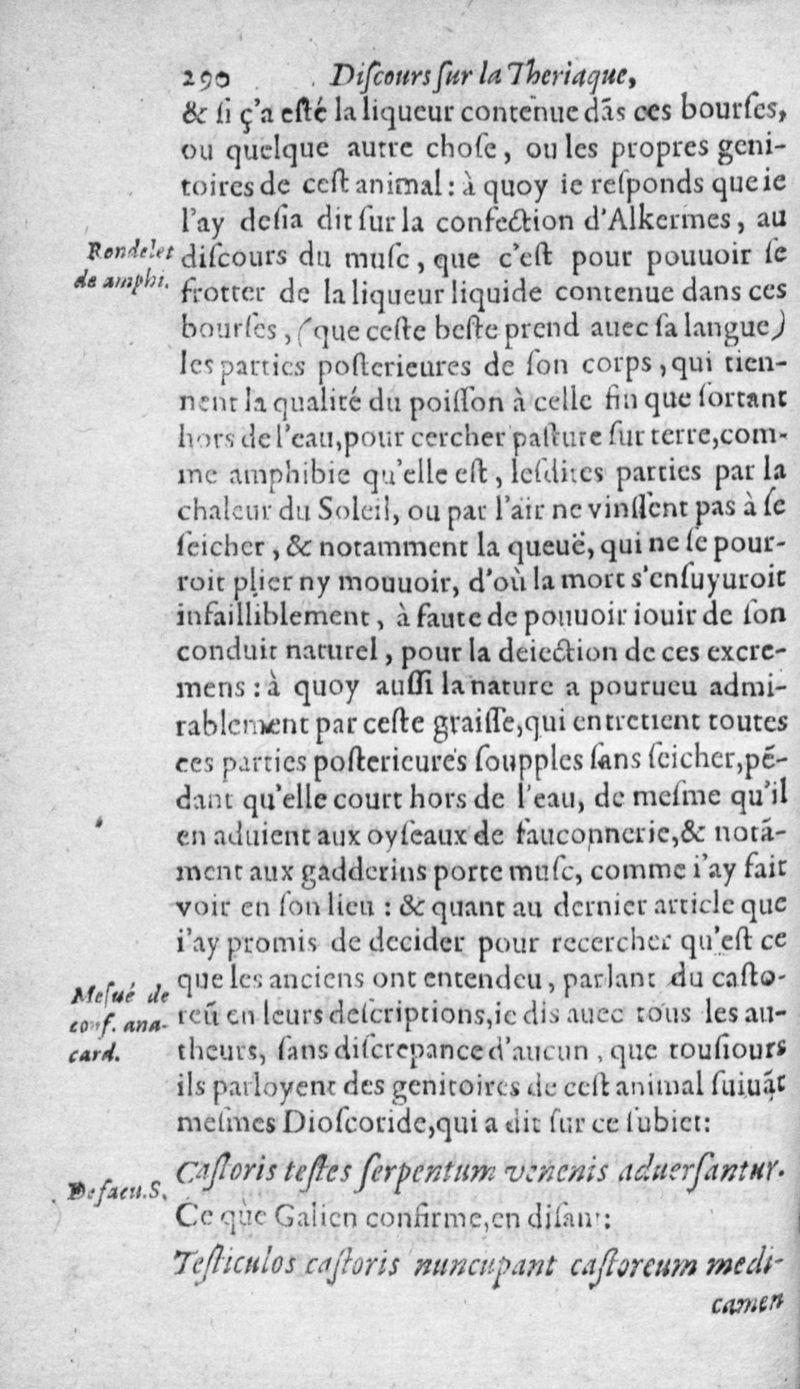 290 Diſcours ſur la Theriaque,
& ſi ç'a eſté la liqueur contenue dãs ces bourſes,
ou quelque autre choſe, ou les propres geni-
toires de ceſt animal : à quoy ie reſponds que ie
l'ay deſia dit ſur la confection d'Alkermes, au
Rondelet
de amphi.
diſcours du muſc, que c'eſt pour pouuoir ſe
frotter de la liqueur liquide contenue dans ces
bourſes, (que ceſte beſte prend auec ſa langue)
les parties poſterieures de ſon corps, qui tien-
nent la qualité du poiſſon à celle fin que ſortant
hors de l'eau, pour cercher paſture ſur terre, com-
me amphibie qu'elle eſt, leſdites parties par la
chaleur du Soleil, ou par l'air ne vinſſent pas à ſe
ſeicher, & notamment la queuë, qui ne ſe pour-
roit plier ny mouuoir, d'où la mort s'enſuyuroit
infailliblement, à faute de pouuoir iouir de ſon
conduit naturel, pour la deiection de ces excre-
mens : à quoy auſſi la nature a pourueu admi-
rablement par ceſte graiſſe, qui entretient toutes
ces parties poſterieures ſoupples ſans ſeicher, pẽ-
dant qu'elle court hors de l'eau, de meſme qu'il
en aduient aux oyſeaux de fauconnerie, & notã-
ment aux gadderins porte muſc, comme i'ay fait
voir en ſon lieu : & quant au dernier article que
i'ay promis de decider pour recercher qu'eſt ce
Meſué de
conf. ana-
card.
que les anciens ont entendeu, parlant du caſto-
reũ en leurs deſcriptions, ie dis auec tous les au-
theurs, ſans diſcrepance d'aucun, que touſiours
ils parloyent des genitoires de ceſt animal ſuiuãt
meſmes Dioſcoride, qui a dit ſur ce ſubiet:
Caſtoris teſtes ſerpentum venenis aduerſantur.
De facu. S.
Ce que Galien confirme, en diſant:
Teſticulos caſtoris nuncupant caſtoreum medi-
camen